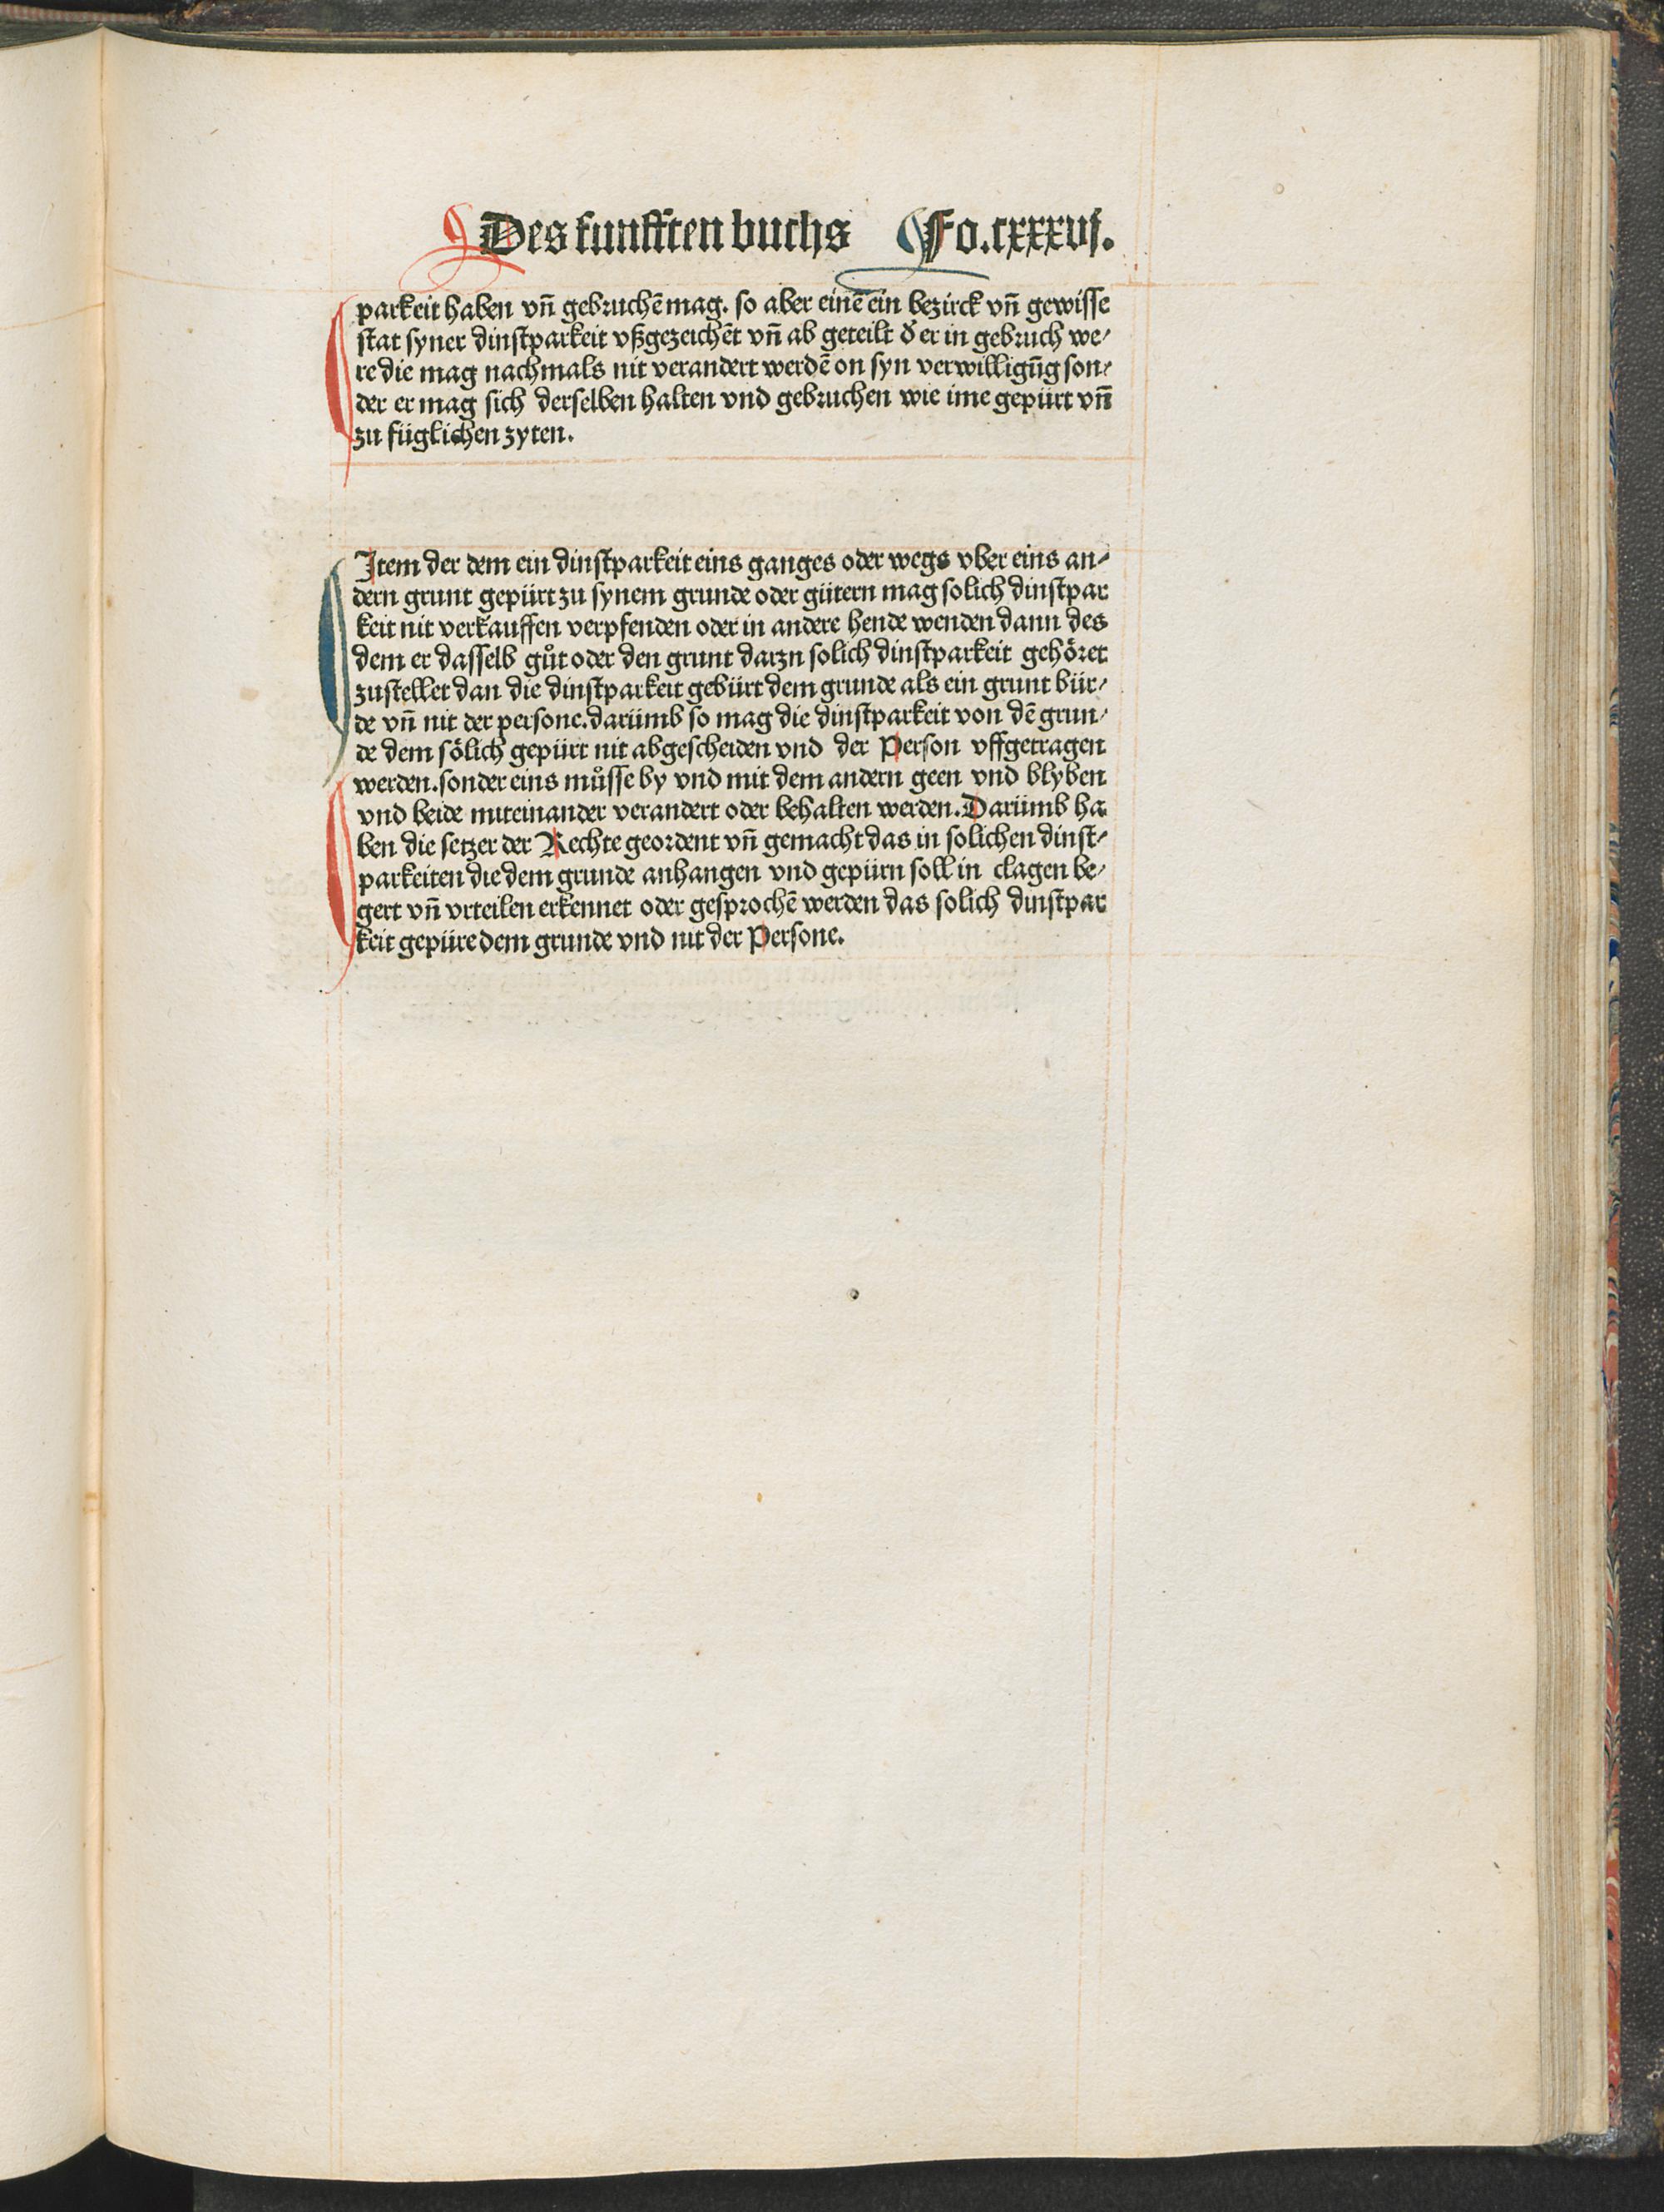 Des funfften buchs Fo.cxxxvj.
parkeit haben vn̄ gebruchē mag. so aber einē ein bezirck vn̄ gewisse
stat syner dinstparkeit vßgezeichēt vn̄ ab geteilt d̕ er in gebruch we⸗
re die mag nachmals nit verandert werdē on syn verwilligūg son⸗
der er mag sich derselben halten vnd gebruchen wie ime gepürt vn̄
zu füglichen zyten.
Item der dem ein dinstparkeit eins ganges oder wegs vber eins an⸗
dern grunt gepürt zu synem grunde oder gütern mag solich dinstpar
keit nit verkauffen verpfenden oder in andere hende wenden dann des
dem er dasselb gůt oder den grunt darzn solich dinstparkeit gehöret
zustellet dan die dinstparkeit gebürt dem grunde als ein grunt bür⸗
de vn̄ nit der persone. darümb so mag die dinstparkeit von dē grun⸗
de dem sölich gepürt nit abgescheiden vnd der Person vffgetragen
werden. sonder eins můsse by vnd mit dem andern geen vnd blyben
vnd beide miteinander verandert oder behalten werden. Darümb ha
ben die setzer der Rechte geordent vn̄ gemacht das in solichen dinst⸗
parkeiten die dem grunde anhangen vnd gepürn soll in clagen be⸗
gert vn̄ vrteilen erkennet oder gesprochē werden das solich dinstpar
keit gepüre dem grunde vnd nit der Persone.